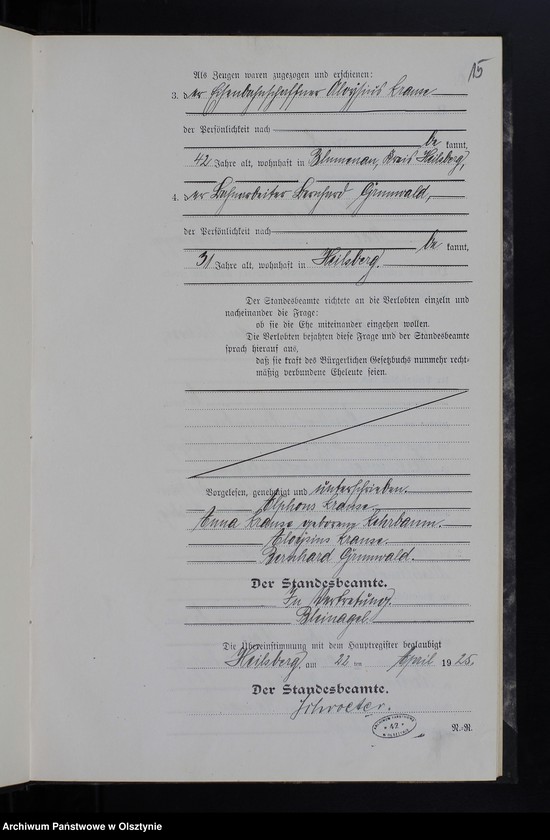 15
Als Zeugen waren zugezogen und erschienen:
3. der Eisenbahnschaffner Aloysius Krause
der Persönlichkeit nach
be kannt,
42 Jahre alt, wohnhaft in Blumenau, Kreis Heilsberg,
4. der Bahnarbeiter Bernhard Grunwald,
der Persönlichkeit nach
be kannt,
31 Jahre alt, wohnhaft in Heilsberg.
Der Standesbeamte richtete an die Verlobten einzeln und
nacheinander die Frage:
ob sie die Ehe miteinander eingehen wollen.
Die Verlobten bejahten diese Frage und der Standesbeamte
sprach hierauf aus,
daß sie kraft des Bürgerlichen Gesetzbuchs nunmehr recht-
mäßig verbundene Eheleute seien.
Vorgelesen, genehmigt und unterschrieben.
Alphons Krause
Anna Krause geborene Lehrbaum.
Aloysius Krause.
Bernhard Grunwald.
Der Standesbeamte.
In Vertretung.
Bleinagel.
Die Übereinstimmung mit dem Hauptregister beglaubigt
Heilsberg, am 22 ten April 1925.
Der Standesbeamte.
Schroeter.
* 42 *
N.-R.
Archiwum Państwowe w Olsztynie